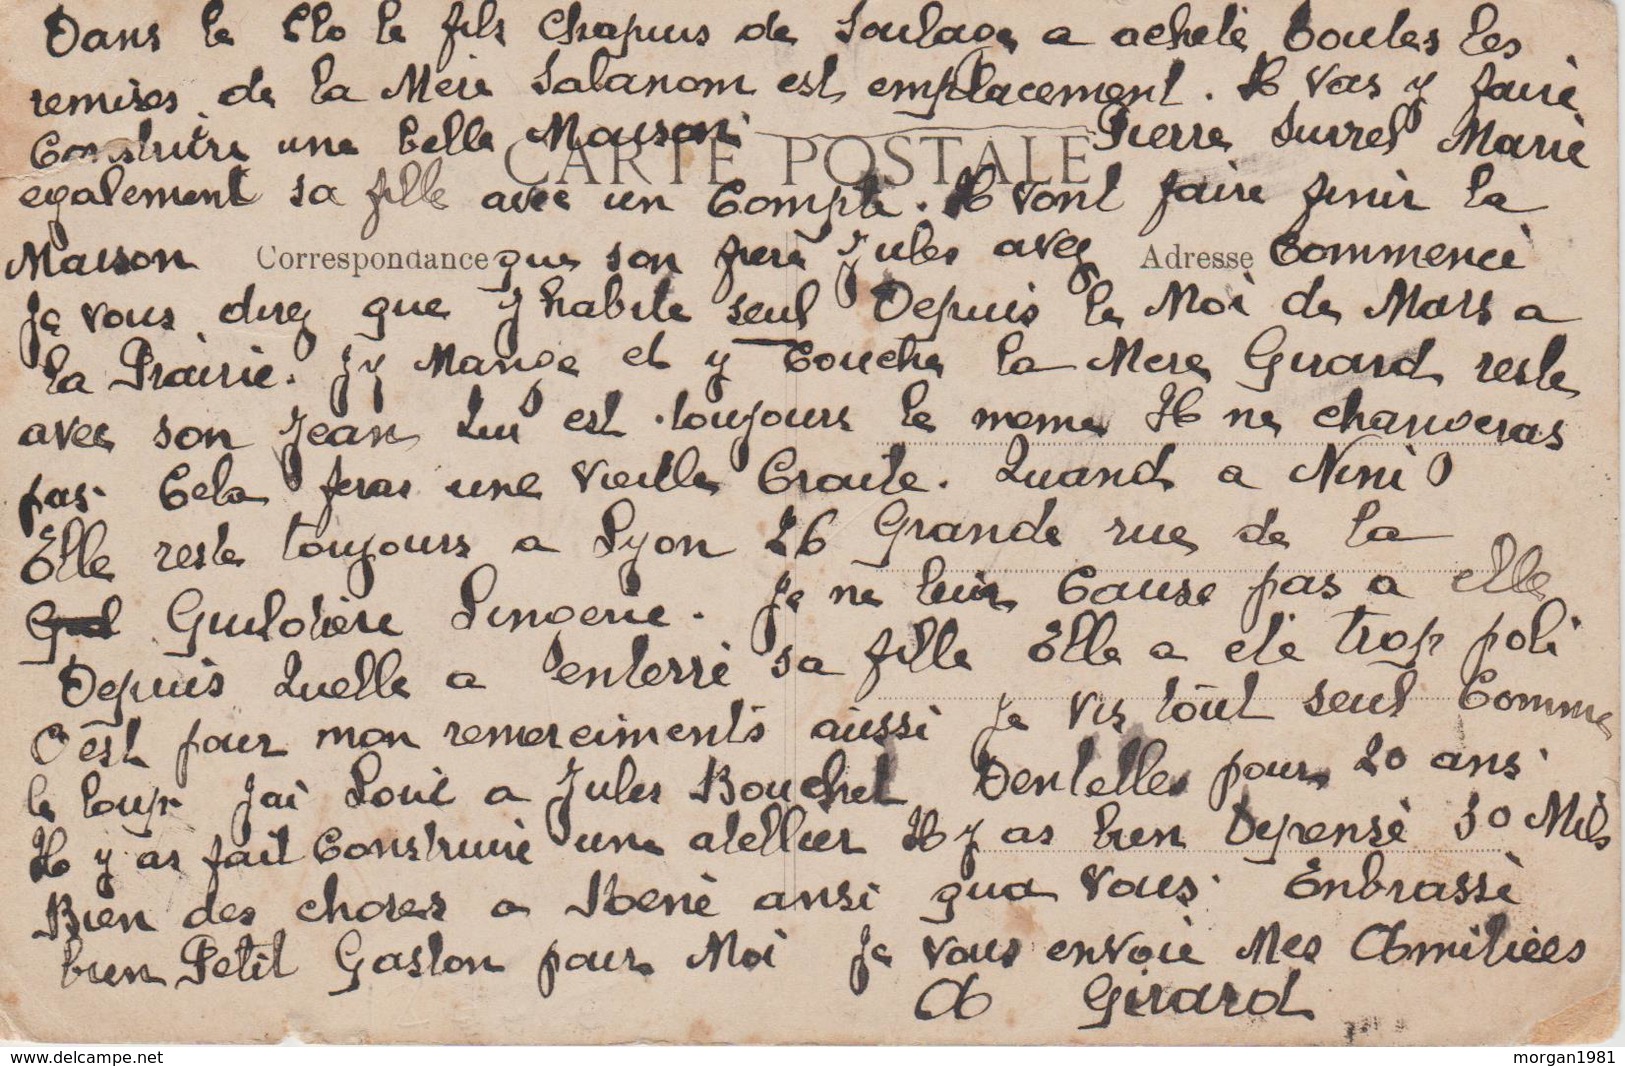 Dans le Clo le fils Chapuis de Soulage a acheté toutes les
remises de la Mère Salanom est emplacement. Il vas y faire
Construire une belle Maison. Pierre Surrel Marie
CARTE POSTALE
egalement sa fille avec un Compte. Il vont faire finir la
Maison que son frere Jules avez Commencé
Correspondance Adresse
Je vous direz que J habite seul Depuis le Moi de Mars a
la Prairie. J y Mange et y Couche la Mere Girard reste
avec son Jean Lui est toujours le meme Il ne changeras
pas. Cela feras une vieille Croute. Quand a Nini
Elle reste toujours a Lyon 26 Grande rue de la
Guilotiere Lingerie. Je ne leur Cause pas a elle
Depuis Quelle a enterré sa fille Elle a été trop poli
C'est pour mon remerciments aussi Je vis tout seul Comme
le loup J'ai Loué a Jules Bouchet Dentelles pour 20 ans.
Il y as fait Construire une atellier Il y as bien Depensé 50 Mils
Bien des choses a René ansi qua vous. Enbrassé
bien Petit Gaston pour Moi Je vous envoie Mes Amitiées
A Girard
www.delcampe.net morgan1981